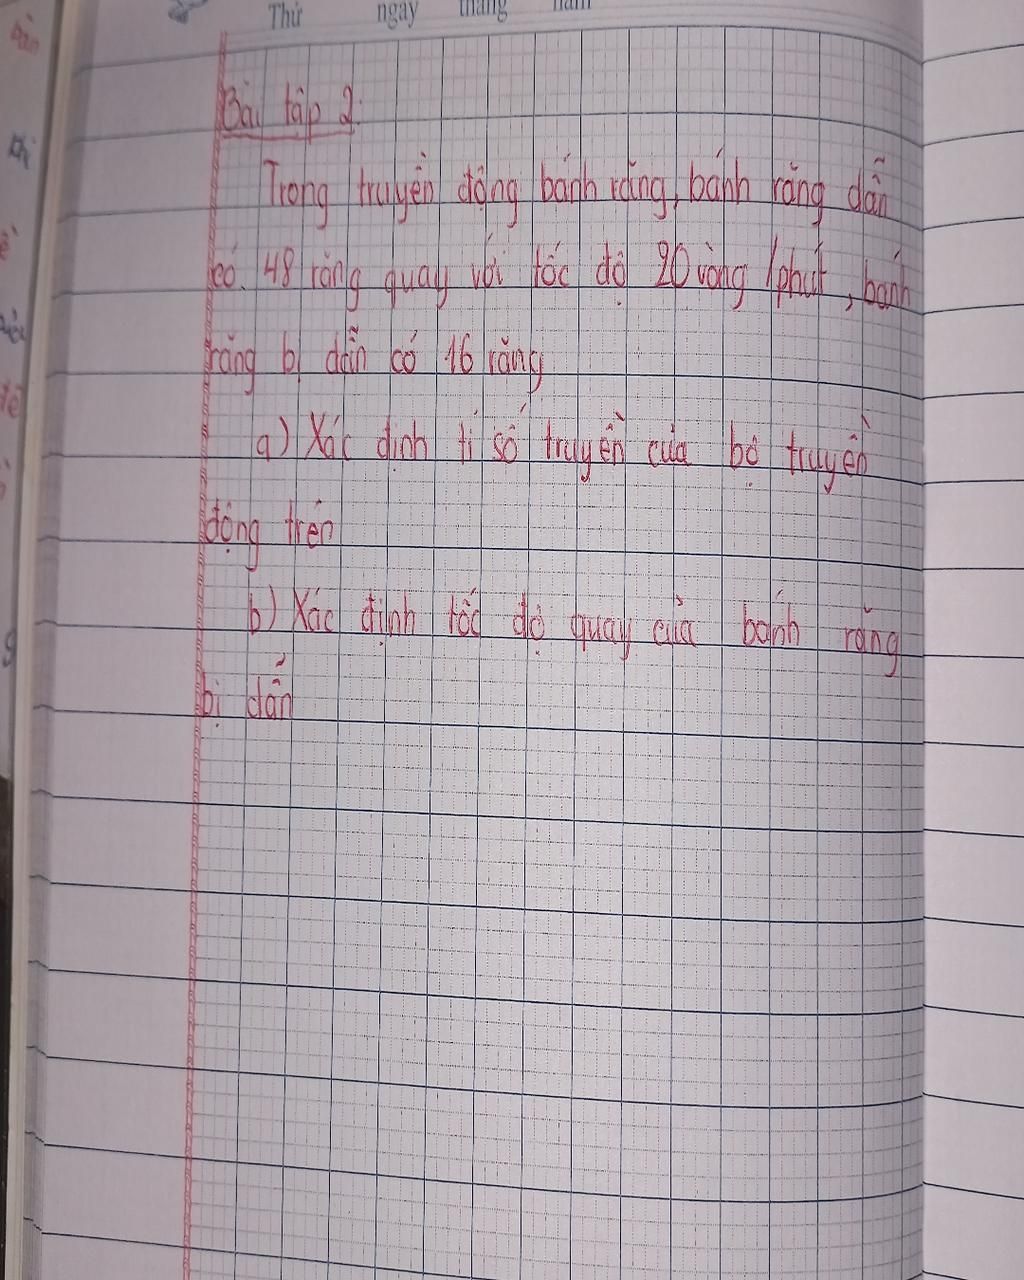 Thứ ngày tháng năm
Bài tập 2:
Trong truyền động bánh răng, bánh răng dẫn
có 48 răng quay với tốc độ 20 vòng /phút, bánh
răng bị dẫn có 16 răng
a) Xác định tỉ số truyền của bộ truyền
động trên
b) Xác định tốc độ quay của bánh răng
bị dẫn